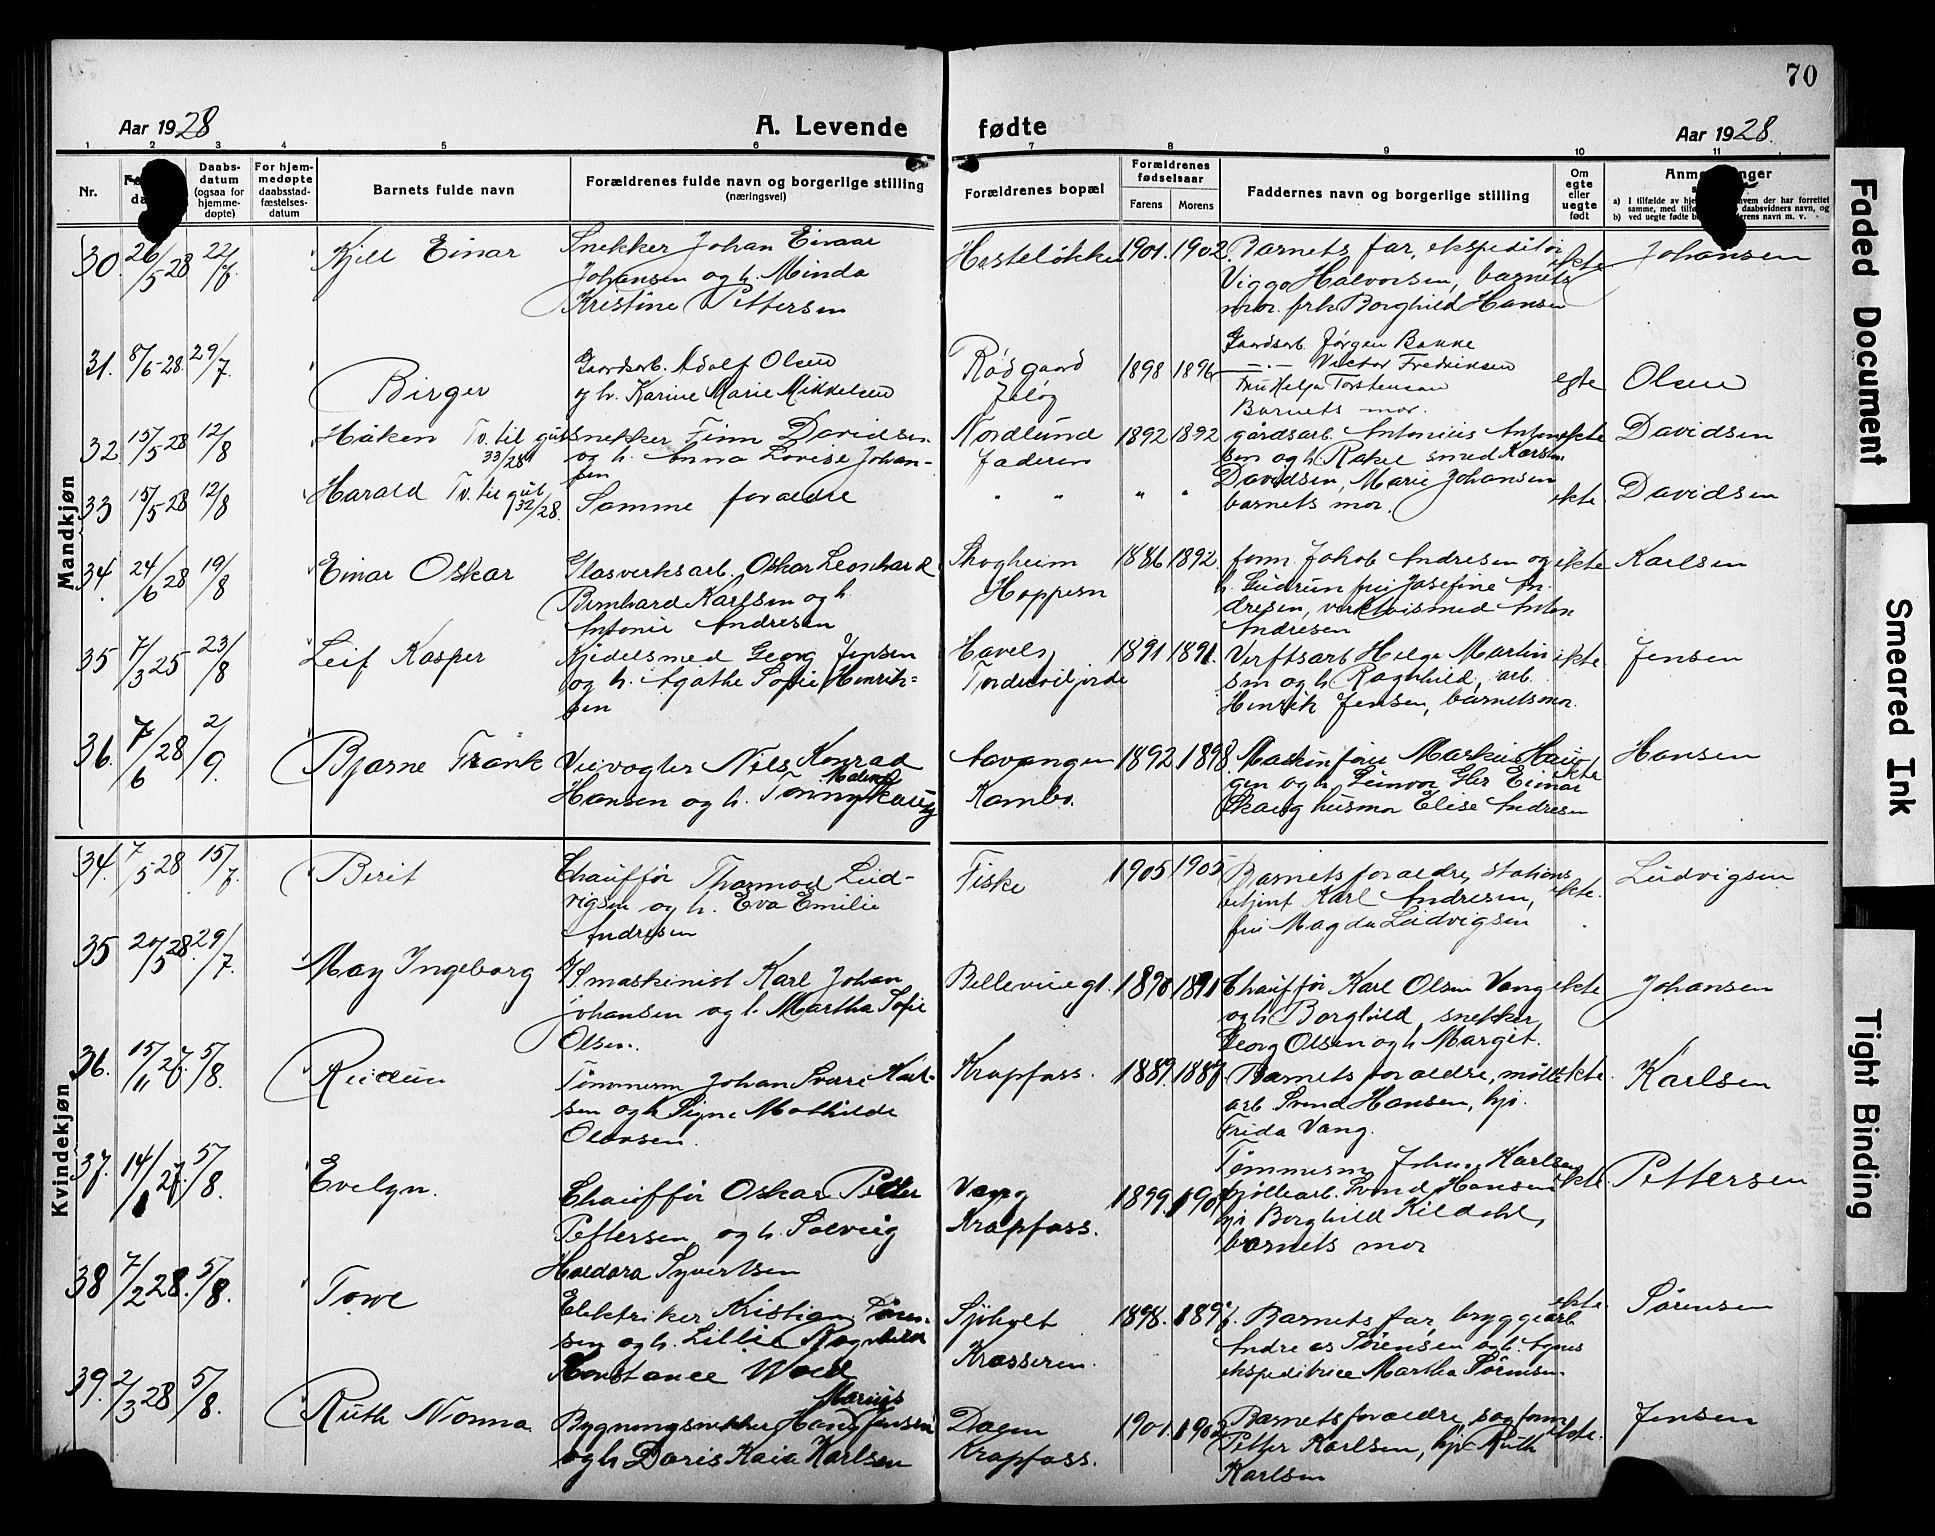 70
Aar 1928
A. Levende
fødte
Aar 1928.
1 2 3 4 5 6 7 8 9 10 11
Nr.
Daabs-
datum
(ogsaa for
hjemme-
døpte)
For hjem-
medøpte
daabsstad-
fæstelses-
datum
Barnets fulde navn
Forældrenes fulde navn og borgerlige stilling
(næringsvei)
Forældrenes bopæl
Forældrenes
fødselsaar
Farens
Morens
Faddernes navn og borgerlige stilling
Om
egte
eller
uegte
født
Mandkjøn
30. 26/5 28 22/7 Kjell Einar Snekker Johan Einaar 1901. 1902. Barnets far, ekspeditør ekte Johansen
Johansen og h. Minda Viggo Halvorsen, barnets
Kristine Pettersen mor. frk Borghild Hansen
31. 8/6-28. 29/7. Birger Gaardsarb. Adolf Olsen Rødgaard 1898 1896 Gaardsarb. Jørgen Bakke egte Olsen
og h. Karine Marie Mikkelsen Jeløy — " — Victor Fredriksen
Fru Helga Torstensen
Barnets mor.
32 15/5 28 12/8 Håken Tv. til gut 33/28 snekker Finn Davidsen Nordlund 1892 1892 gårdsarb. Antonius Anton- ekte Davidsen
og h. Anna Lovise Johan- sen og h Rakel smed Karsten
sen Davidsen, Marie Johansen
33 15/5 28 12/8 Harald Tv. til gut 32/28. Samme foraeldre " " " " barnets mor. ekte. Davidsen
34. 24/6 28 19/8 Einar Oskar Glasverksarb. Oskar Leonhard Skogheim 1886 1892. form Jakob Andresen og ekte Karlsen
Bernhard Karlsen og h. Hoppern h. Gudrun fru Josefine An-
Antonie Andresen dresen, Anton
Andresen
35 7/3 25 23/8 Leif Kasper Kjedelsmed Georg Jensen 1891 1891. Verftsarb Helge Martin ekte. Jensen
og h. Agathe Sofie Henrik- sen og h Ragnhild, arb.
sen Henrik Jensen, barnets mor.
36. 7/6 28 2/9. Bjarne Frank Veivogter Nils Konrad 1892 1898. Maskinfører Markus Hau- ekte Hansen
Hansen og h. Fanny Malene Skaug Kambo. gen og h. Einar
Skaug husmor Elise Andresen
Kvindekjøn
34. 7/5 28 15/7. Berit Chauffør Thormod Lud- Fiske 1905 1905 Barnets foraeldre, stations ekte. Ludvigsen
vigsen og h. Eva Emilie betjent Karl Andresen,
Andresen fru Magda Ludvigsen
35 20/5 28. 29/7. May Ingeborg maskinist Karl Johan Bellevuegt. 1890 1891 Chauffør Karl Olsen Vang ekte Johansen
Johansen og h. Martha Sofie og h Borghild, snekker
Olsen. Georg Olsen og h Margit.
36. 15/11 27. 5/8. Reidun Tømmerm Johan Sverre Karl- Krapfoss. 1889. 1887. Barnets foraeldre, mølle- ekte. Karlsen
sen og h Signe Mathilde arb Svend Hansen, hp.
Olavsen. Frida Vang.
37. 14/1 27. 5/8. Evelyn. Chauffør Oskar Petter Vang 1899. Tømmerm Johan Karlsen ekte. Pettersen
Pettersen og h. Solveig Krapfoss. møllearb. Svend Hansen
Haldora Syvertsen hp. Borghild Kildahl,
barnets mor
38 7/2 28. 5/8. Tove Elektriker Kristian Søren- Sjøholt 1898. Barnets far, bryggearb ekte. Sørensen
sen og h. Lilli Ragnhild Krosseren. Andreas Sørensen og h. Agnes
Konstance Wold ekspeditrice Martha Sørensen.
39. 2/3 28 5/8. Ruth Nonna Bygningsnekker Hans Marius Jensen Dalen 1901. 1902. Barnets foraeldre, sagform ekte. Jensen
og h Doris Kaia Karlsen Krapfoss. Petter Karlsen, hp Ruth
Karlsen
Faded Document
Smeared Ink
Tight Binding